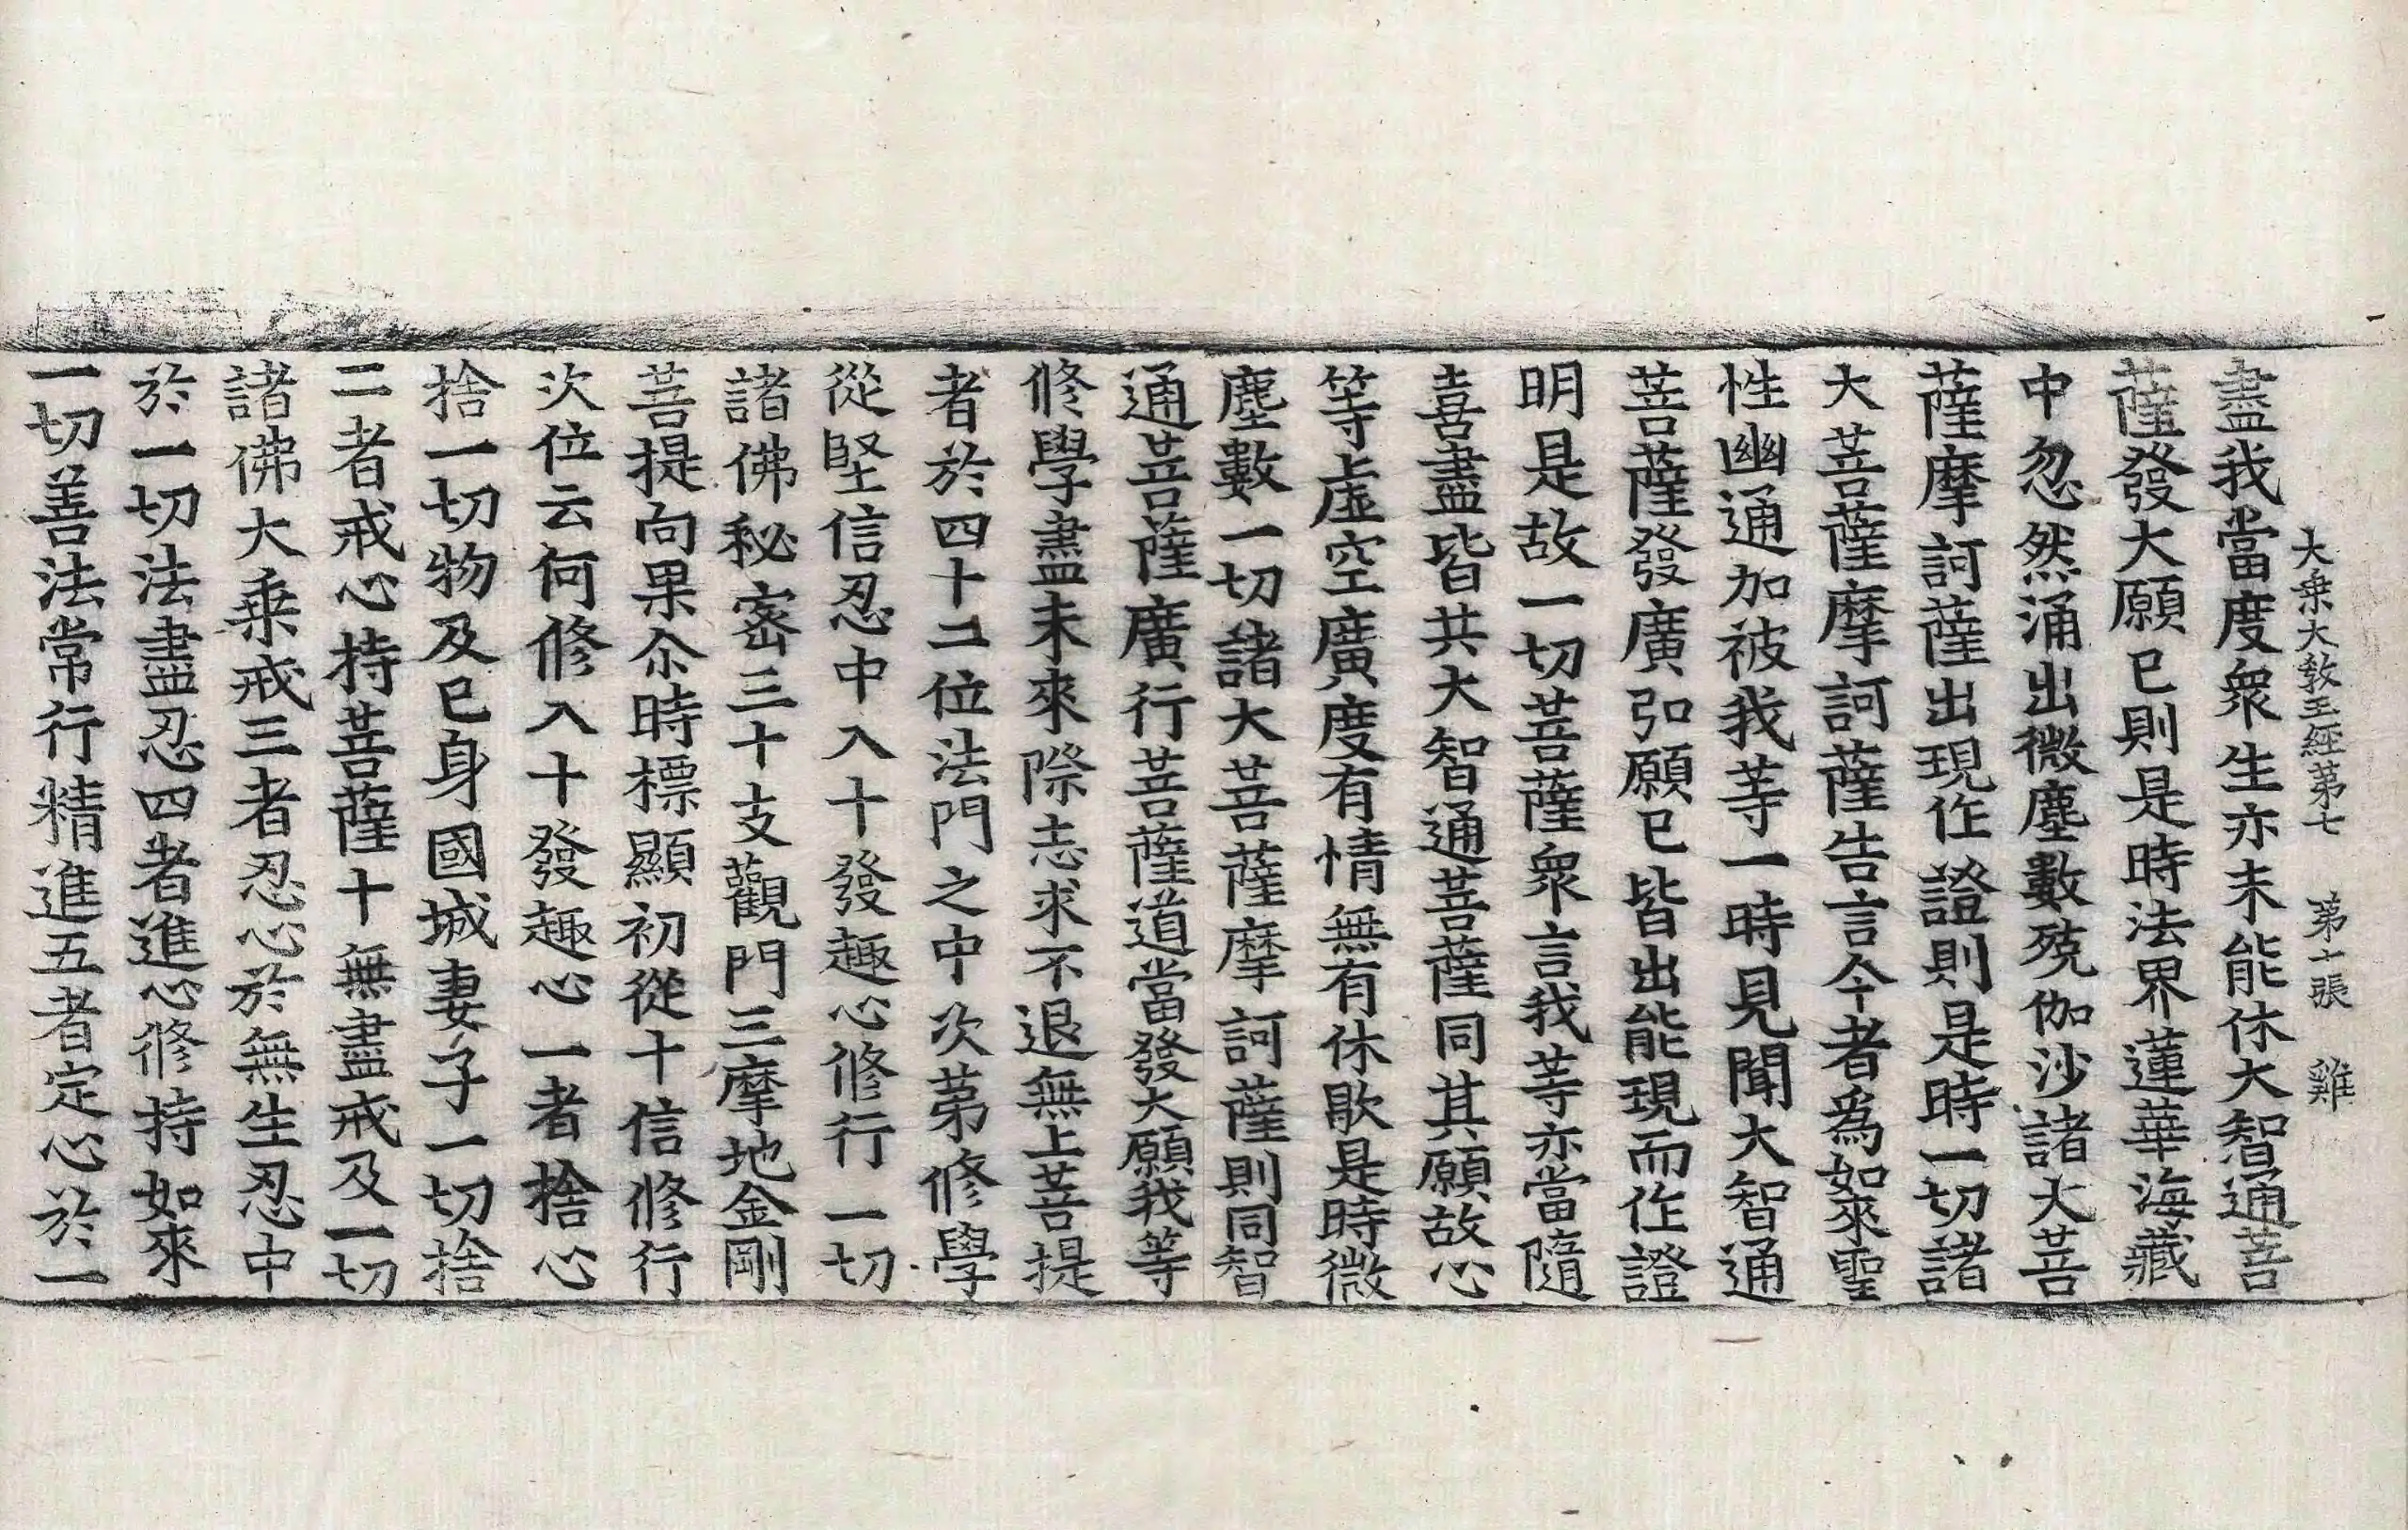 大乘大教王經第七 第十張 雞
盡我當度衆生亦未能休大智通菩
薩發大願已則是時法界蓮華海藏
中忽然涌出微塵數殑伽沙諸大菩
薩摩訶薩出現作證則是時一切諸
大菩薩摩訶薩告言今者爲如來聖
性幽通加被我等一時見聞大智通
菩薩發廣弘願已皆出能現而作證
明是故一切菩薩衆言我等亦當隨
喜盡皆共大智通菩薩同其願故心
等虛空廣度有情無有休歇是時微
塵數一切諸大菩薩摩訶薩則同智
通菩薩廣行菩薩道當發大願我等
修學盡未來際志求不退無上菩提
者於四十二位法門之中次第修學
從堅信忍中入十發趣心修行一切
諸佛秘密三十支觀門三摩地金剛
菩提向果尒時標顯初從十信修行
次位云何修入十發趣心一者捨心
捨一切物及已身國城妻子一切捨
二者戒心持菩薩十無盡戒及一切
諸佛大乘戒三者忍心於無生忍中
於一切法盡忍四者進心修持如來
一切善法常行精進五者定心於一